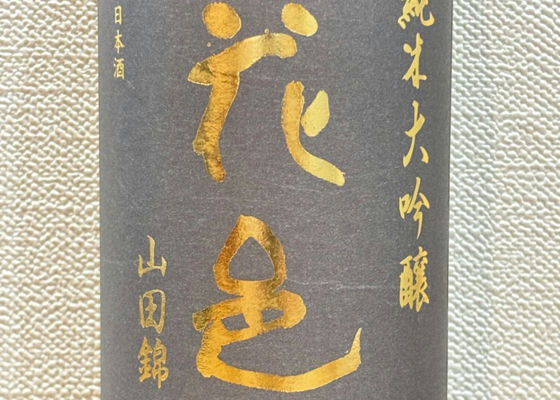 純米大吟醸
花邑
日本酒
山田錦